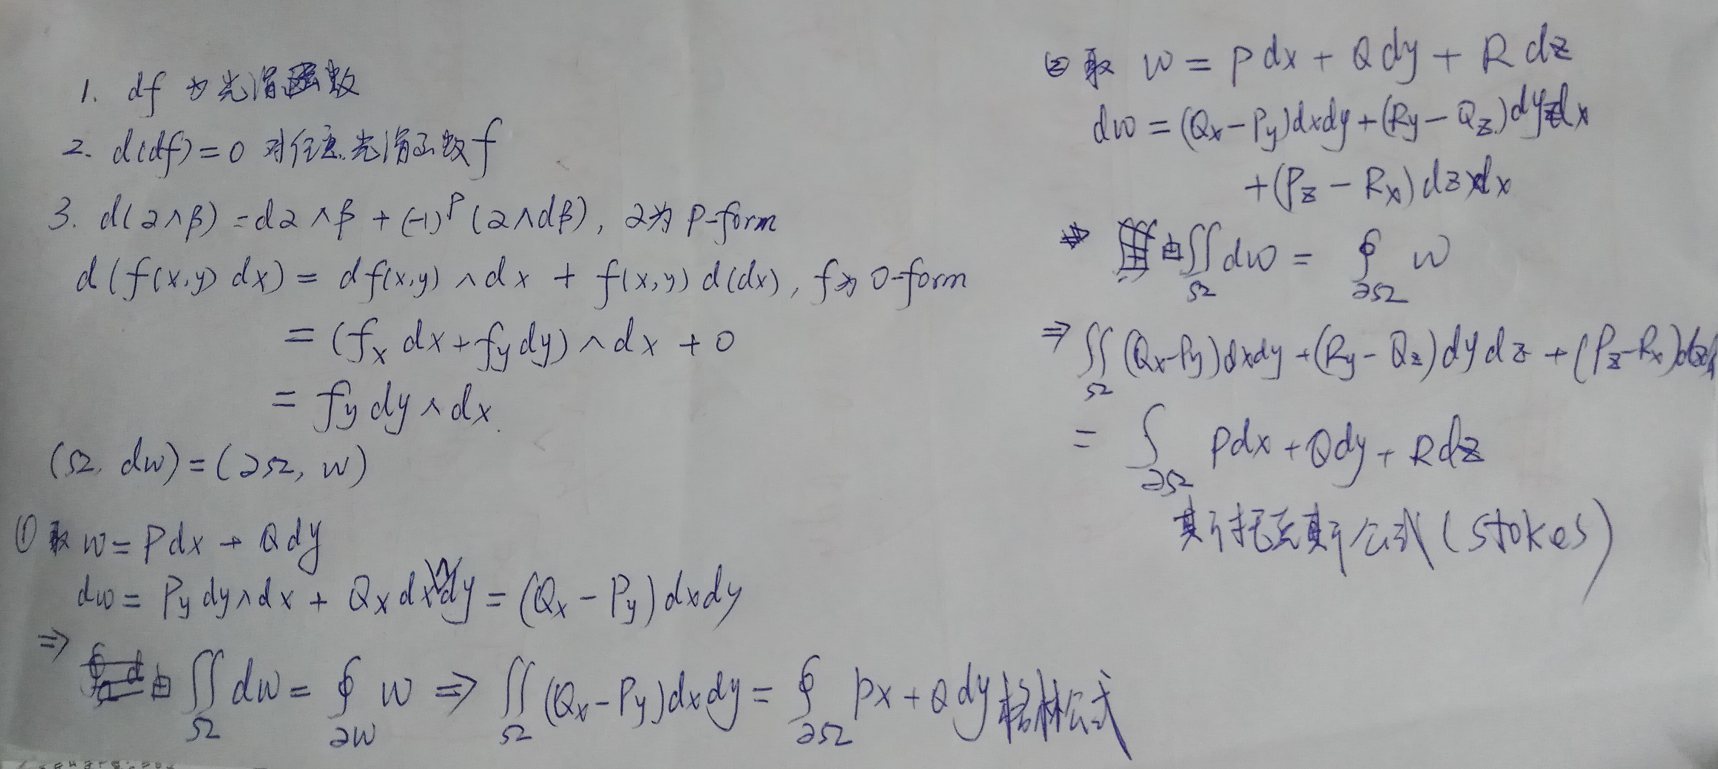 1. df 为光滑函数
2. d(df)=0 对任意光滑函数f
3. d(2∧β)=d2∧β+(-1)^P(2∧dβ), 2为 P-form
d(f(x,y)dx)= df(x,y)∧dx + f(x,y)d(dx), f为 0-form
= (f_x dx+f_y dy)∧dx+0
= f_y dy∧dx.
(Ω, dw)=(∂Ω, w)
① 取 w= Pdx + Qdy
dw= P_y dy∧dx + Q_x dx∧dy=(Q_x-P_y)dxdy
⇒ 由 ∬_Ω dw= ∮_∂w w ⇒ ∬_Ω (Q_x-P_y)dxdy= ∮_∂Ω Px+Qdy 格林公式
② 取 w= Pdx+Qdy+Rdz
dw=(Q_x-P_y)dxdy+(R_y-Q_z)dydx
+(P_z-R_x)dzdx
由∬_Ω dw= ∮_∂Ω w
⇒ ∬_Ω (Q_x-P_y)dxdy+(R_y-Q_z)dydz+(P_z-R_x)
= ∫_∂Ω Pdx+Qdy+Rdz
斯托克斯公式(stokes)